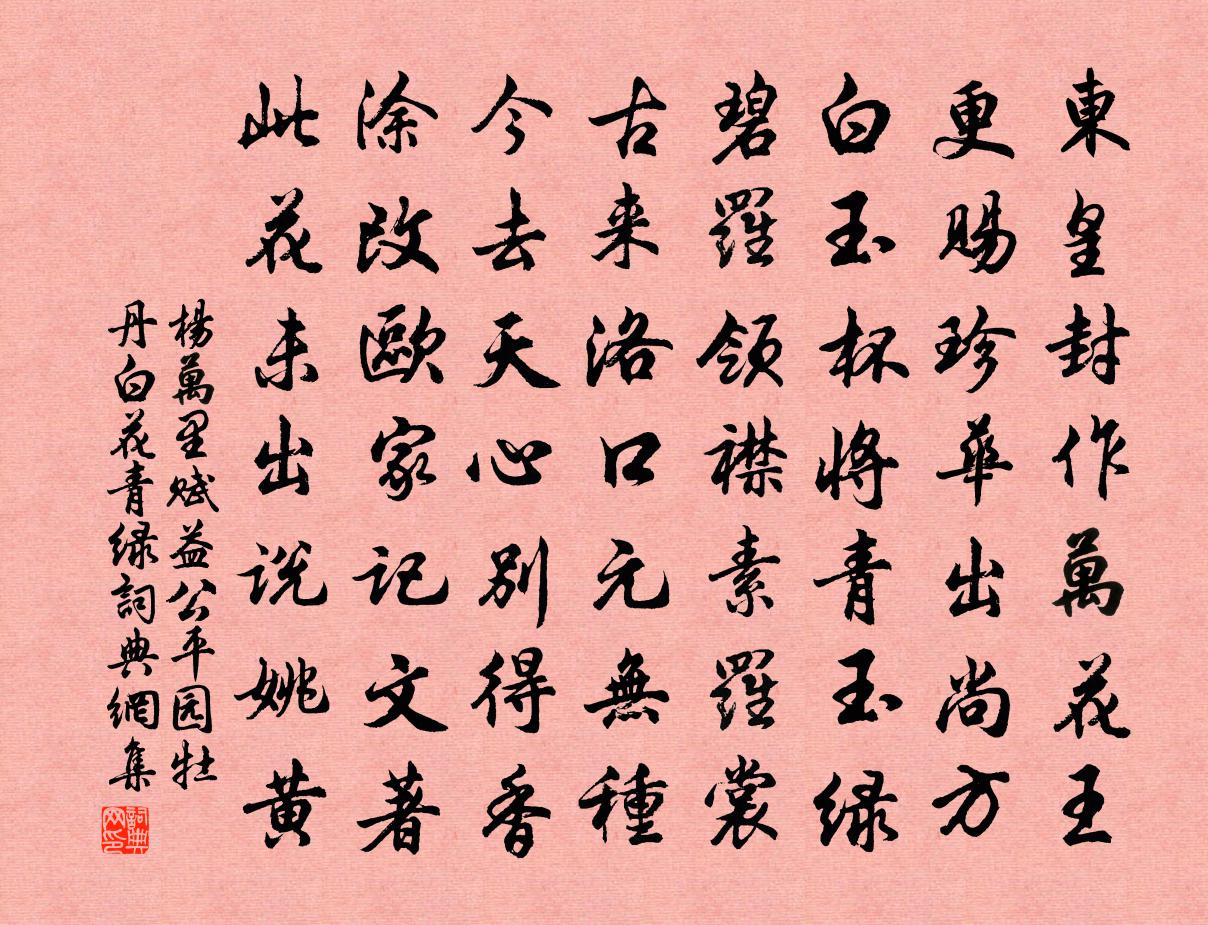 東皇封作萬花王
更賜珍華出尚方
白玉杯將青玉緑
碧羅領襟素羅裳
古来洛口元無種
今去天心別得香
涂改歐家記文著
此花未出説姚黄
楊萬里賦益公平园牡
丹白花青緑詞典網集
詞典网印